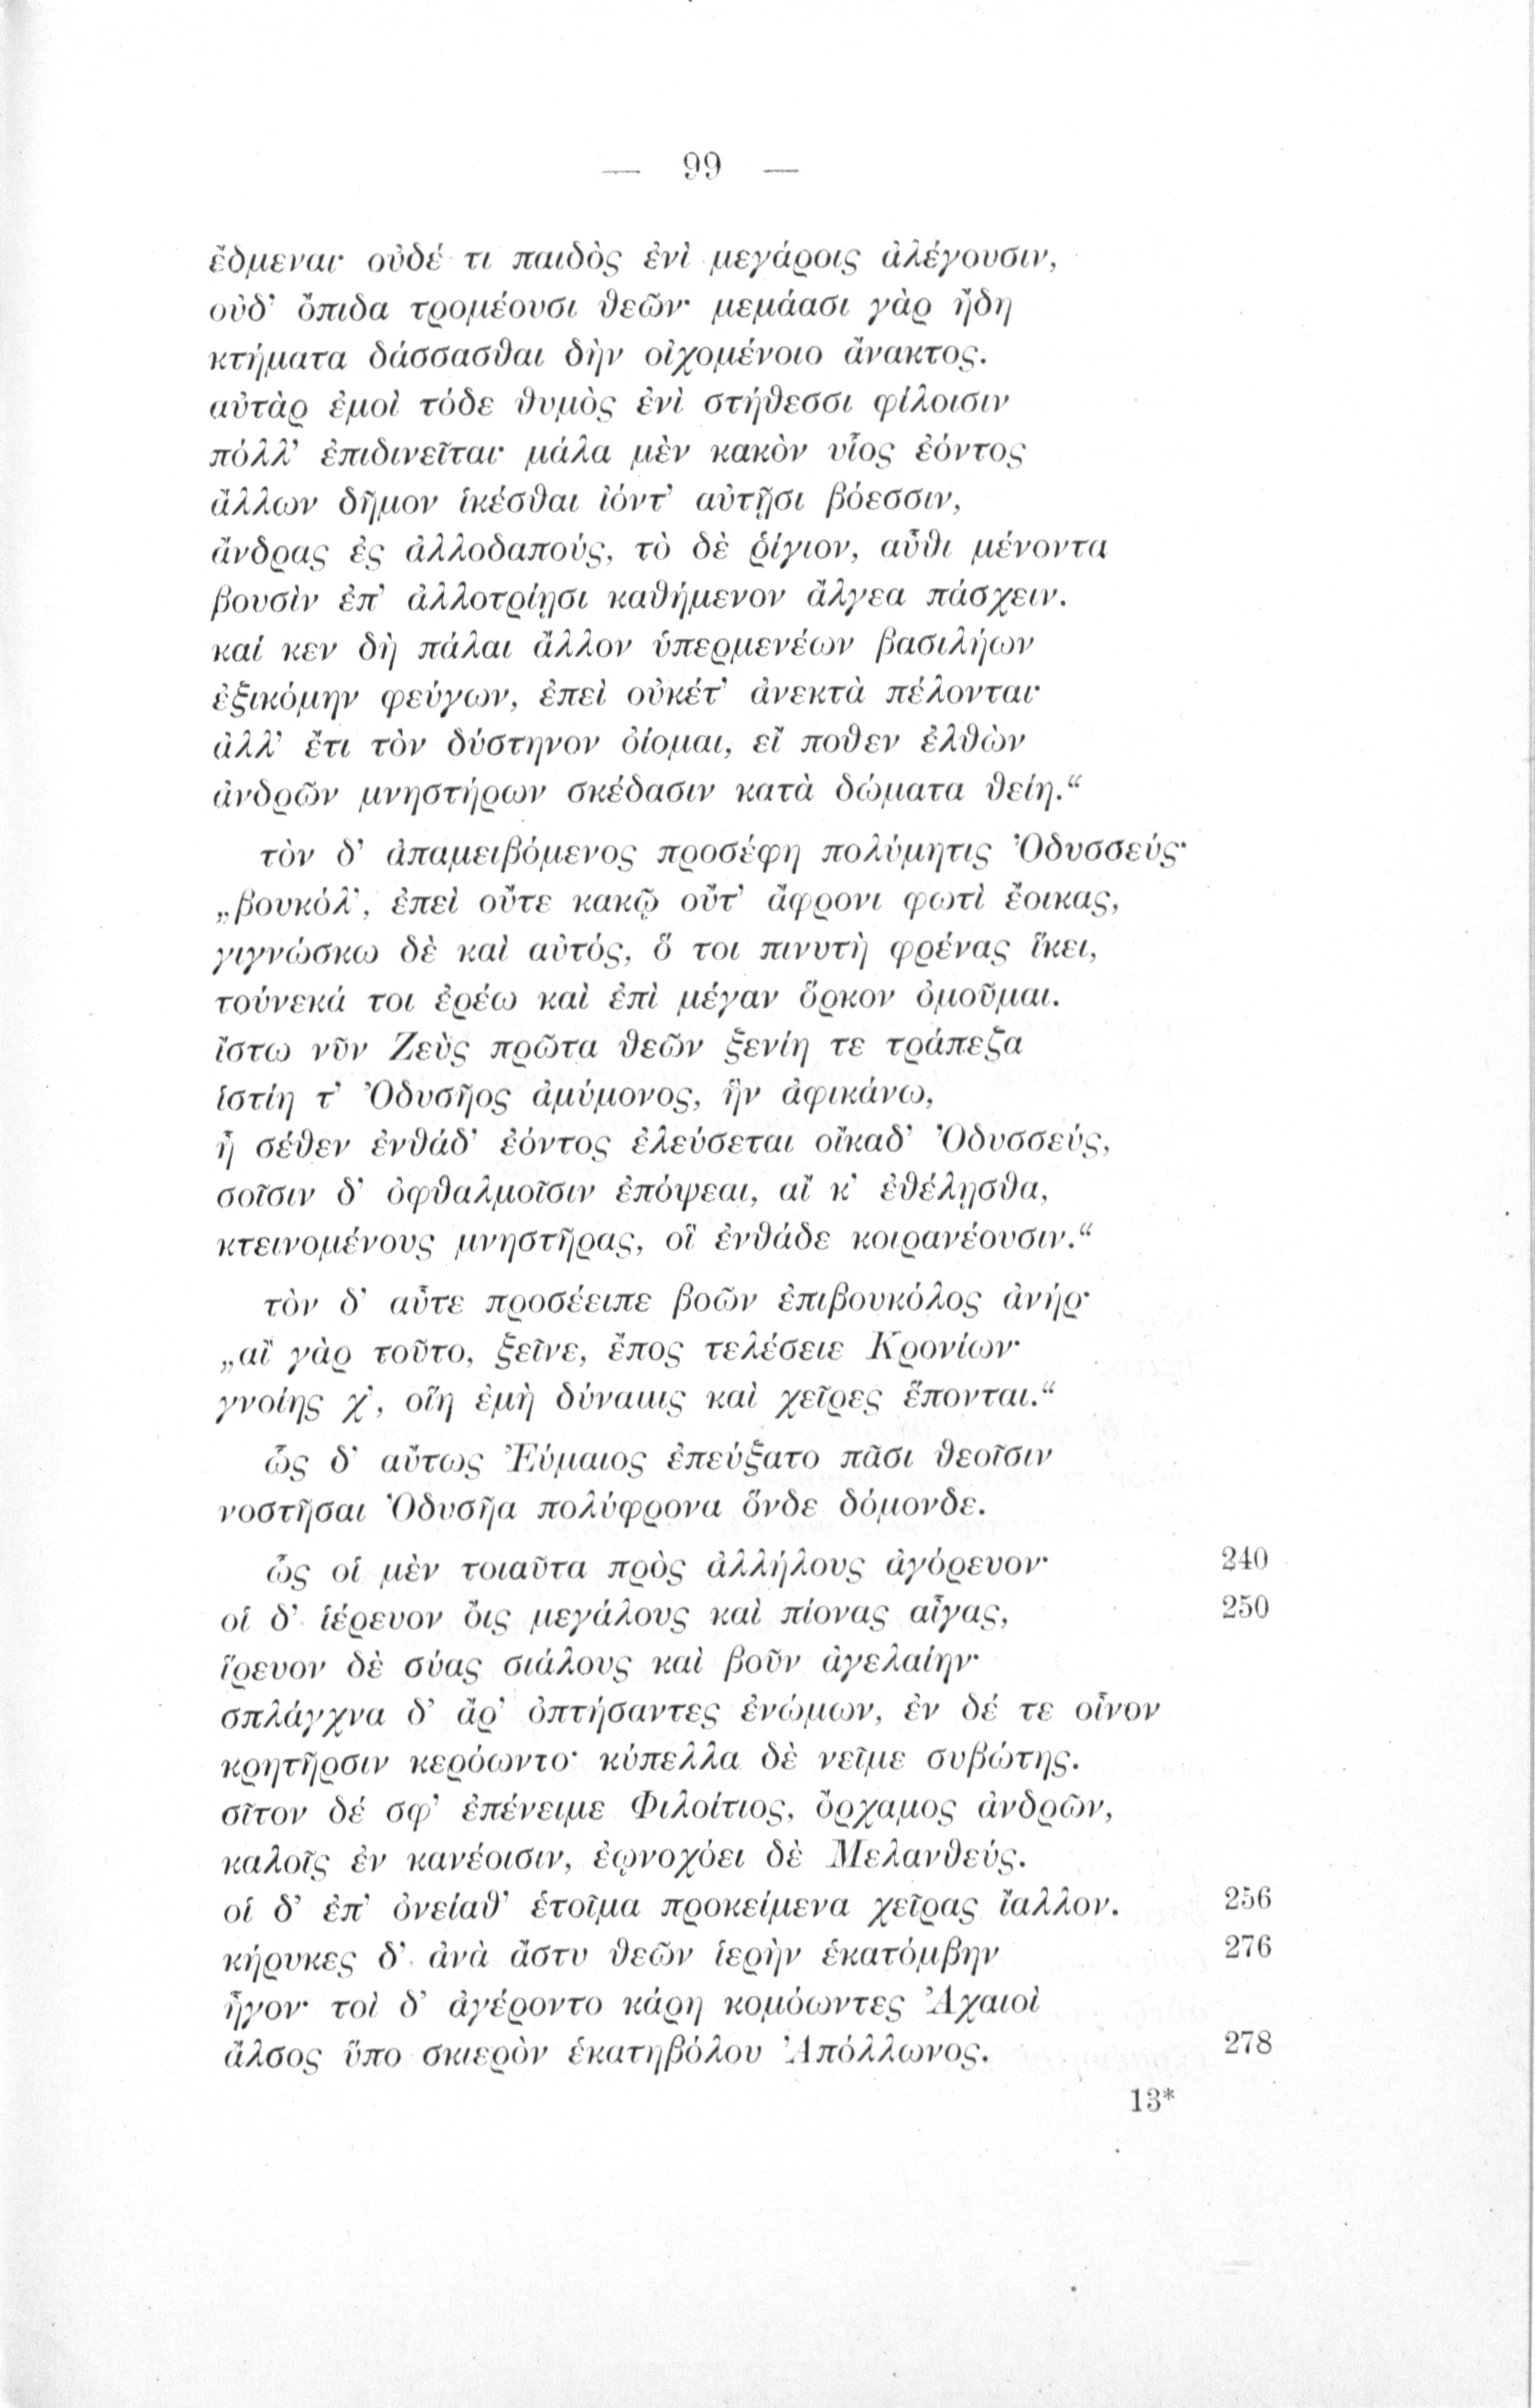 — 99 —
ἔδμεναι· οὐδέ τι παιδὸς ἐνὶ μεγάροις ἀλέγουσιν,
οὐδ' ὄπιδα τρομέουσι θεῶν· μεμάασι γὰρ ἤδη
κτήματα δάσσασθαι δὴν οἰχομένοιο ἄνακτος.
αὐτὰρ ἐμοὶ τόδε θυμὸς ἐνὶ στήθεσσι φίλοισιν
πόλλ' ἐπιδινεῖται· μάλα μὲν κακὸν υἷος ἐόντος
ἄλλων δῆμον ἱκέσθαι ἰόντ' αὐτῇσι βόεσσιν,
ἄνδρας ἐς ἀλλοδαπούς, τὸ δὲ ῥίγιον, αὖθι μένοντα
βουσὶν ἐπ' ἀλλοτρίῃσι καθήμενον ἄλγεα πάσχειν.
καί κεν δὴ πάλαι ἄλλον ὑπερμενέων βασιλήων
ἐξικόμην φεύγων, ἐπεὶ οὐκέτ' ἀνεκτὰ πέλονται·
ἀλλ' ἔτι τὸν δύστηνον ὀίομαι, εἴ ποθεν ἐλθὼν
ἀνδρῶν μνηστήρων σκέδασιν κατὰ δώματα θείη.“
τὸν δ' ἀπαμειβόμενος προσέφη πολύμητις Ὀδυσσεύς·
„βουκόλ', ἐπεὶ οὔτε κακῷ οὔτ' ἄφρονι φωτὶ ἔοικας,
γιγνώσκω δὲ καὶ αὐτός, ὅ τοι πινυτὴ φρένας ἵκει,
τούνεκά τοι ἐρέω καὶ ἐπὶ μέγαν ὅρκον ὀμοῦμαι.
ἴστω νῦν Ζεὺς πρῶτα θεῶν ξενίη τε τράπεζα
ἱστίη τ' Ὀδυσῆος ἀμύμονος, ἣν ἀφικάνω,
ἦ σέθεν ἐνθάδ' ἐόντος ἐλεύσεται οἴκαδ' Ὀδυσσεύς,
σοῖσιν δ' ὀφθαλμοῖσιν ἐπόψεαι, αἴ κ' ἐθέλῃσθα,
κτεινομένους μνηστῆρας, οἳ ἐνθάδε κοιρανέουσιν.“
τὸν δ' αὖτε προσέειπε βοῶν ἐπιβουκόλος ἀνήρ·
„αἲ γὰρ τοῦτο, ξεῖνε, ἔπος τελέσειε Κρονίων·
γνοίης χ', οἵη ἐμὴ δύναμις καὶ χεῖρες ἕπονται.“
ὣς δ' αὔτως Ἐύμαιος ἐπεύξατο πᾶσι θεοῖσιν
νοστῆσαι Ὀδυσῆα πολύφρονα ὅνδε δόμονδε.
ὣς οἱ μὲν τοιαῦτα πρὸς ἀλλήλους ἀγόρευον· 240
οἱ δ' ἱέρευον ὄις μεγάλους καὶ πίονας αἶγας, 250
ἵρευον δὲ σύας σιάλους καὶ βοῦν ἀγελαίην·
σπλάγχνα δ' ἄρ' ὀπτήσαντες ἐνώμων, ἐν δέ τε οἶνον
κρητῆρσιν κερόωντο· κύπελλα δὲ νεῖμε συβώτης.
σῖτον δέ σφ' ἐπένειμε Φιλοίτιος, ὄρχαμος ἀνδρῶν,
καλοῖς ἐν κανέοισιν, ἐῳνοχόει δὲ Μελανθεύς.
οἱ δ' ἐπ' ὀνείαθ' ἑτοῖμα προκείμενα χεῖρας ἴαλλον. 256
κήρυκες δ' ἀνὰ ἄστυ θεῶν ἱερὴν ἑκατόμβην 276
ἦγον· τοὶ δ' ἀγέροντο κάρη κομόωντες Ἀχαιοὶ
ἄλσος ὕπο σκιερὸν ἑκατηβόλου Ἀπόλλωνος. 278
13*